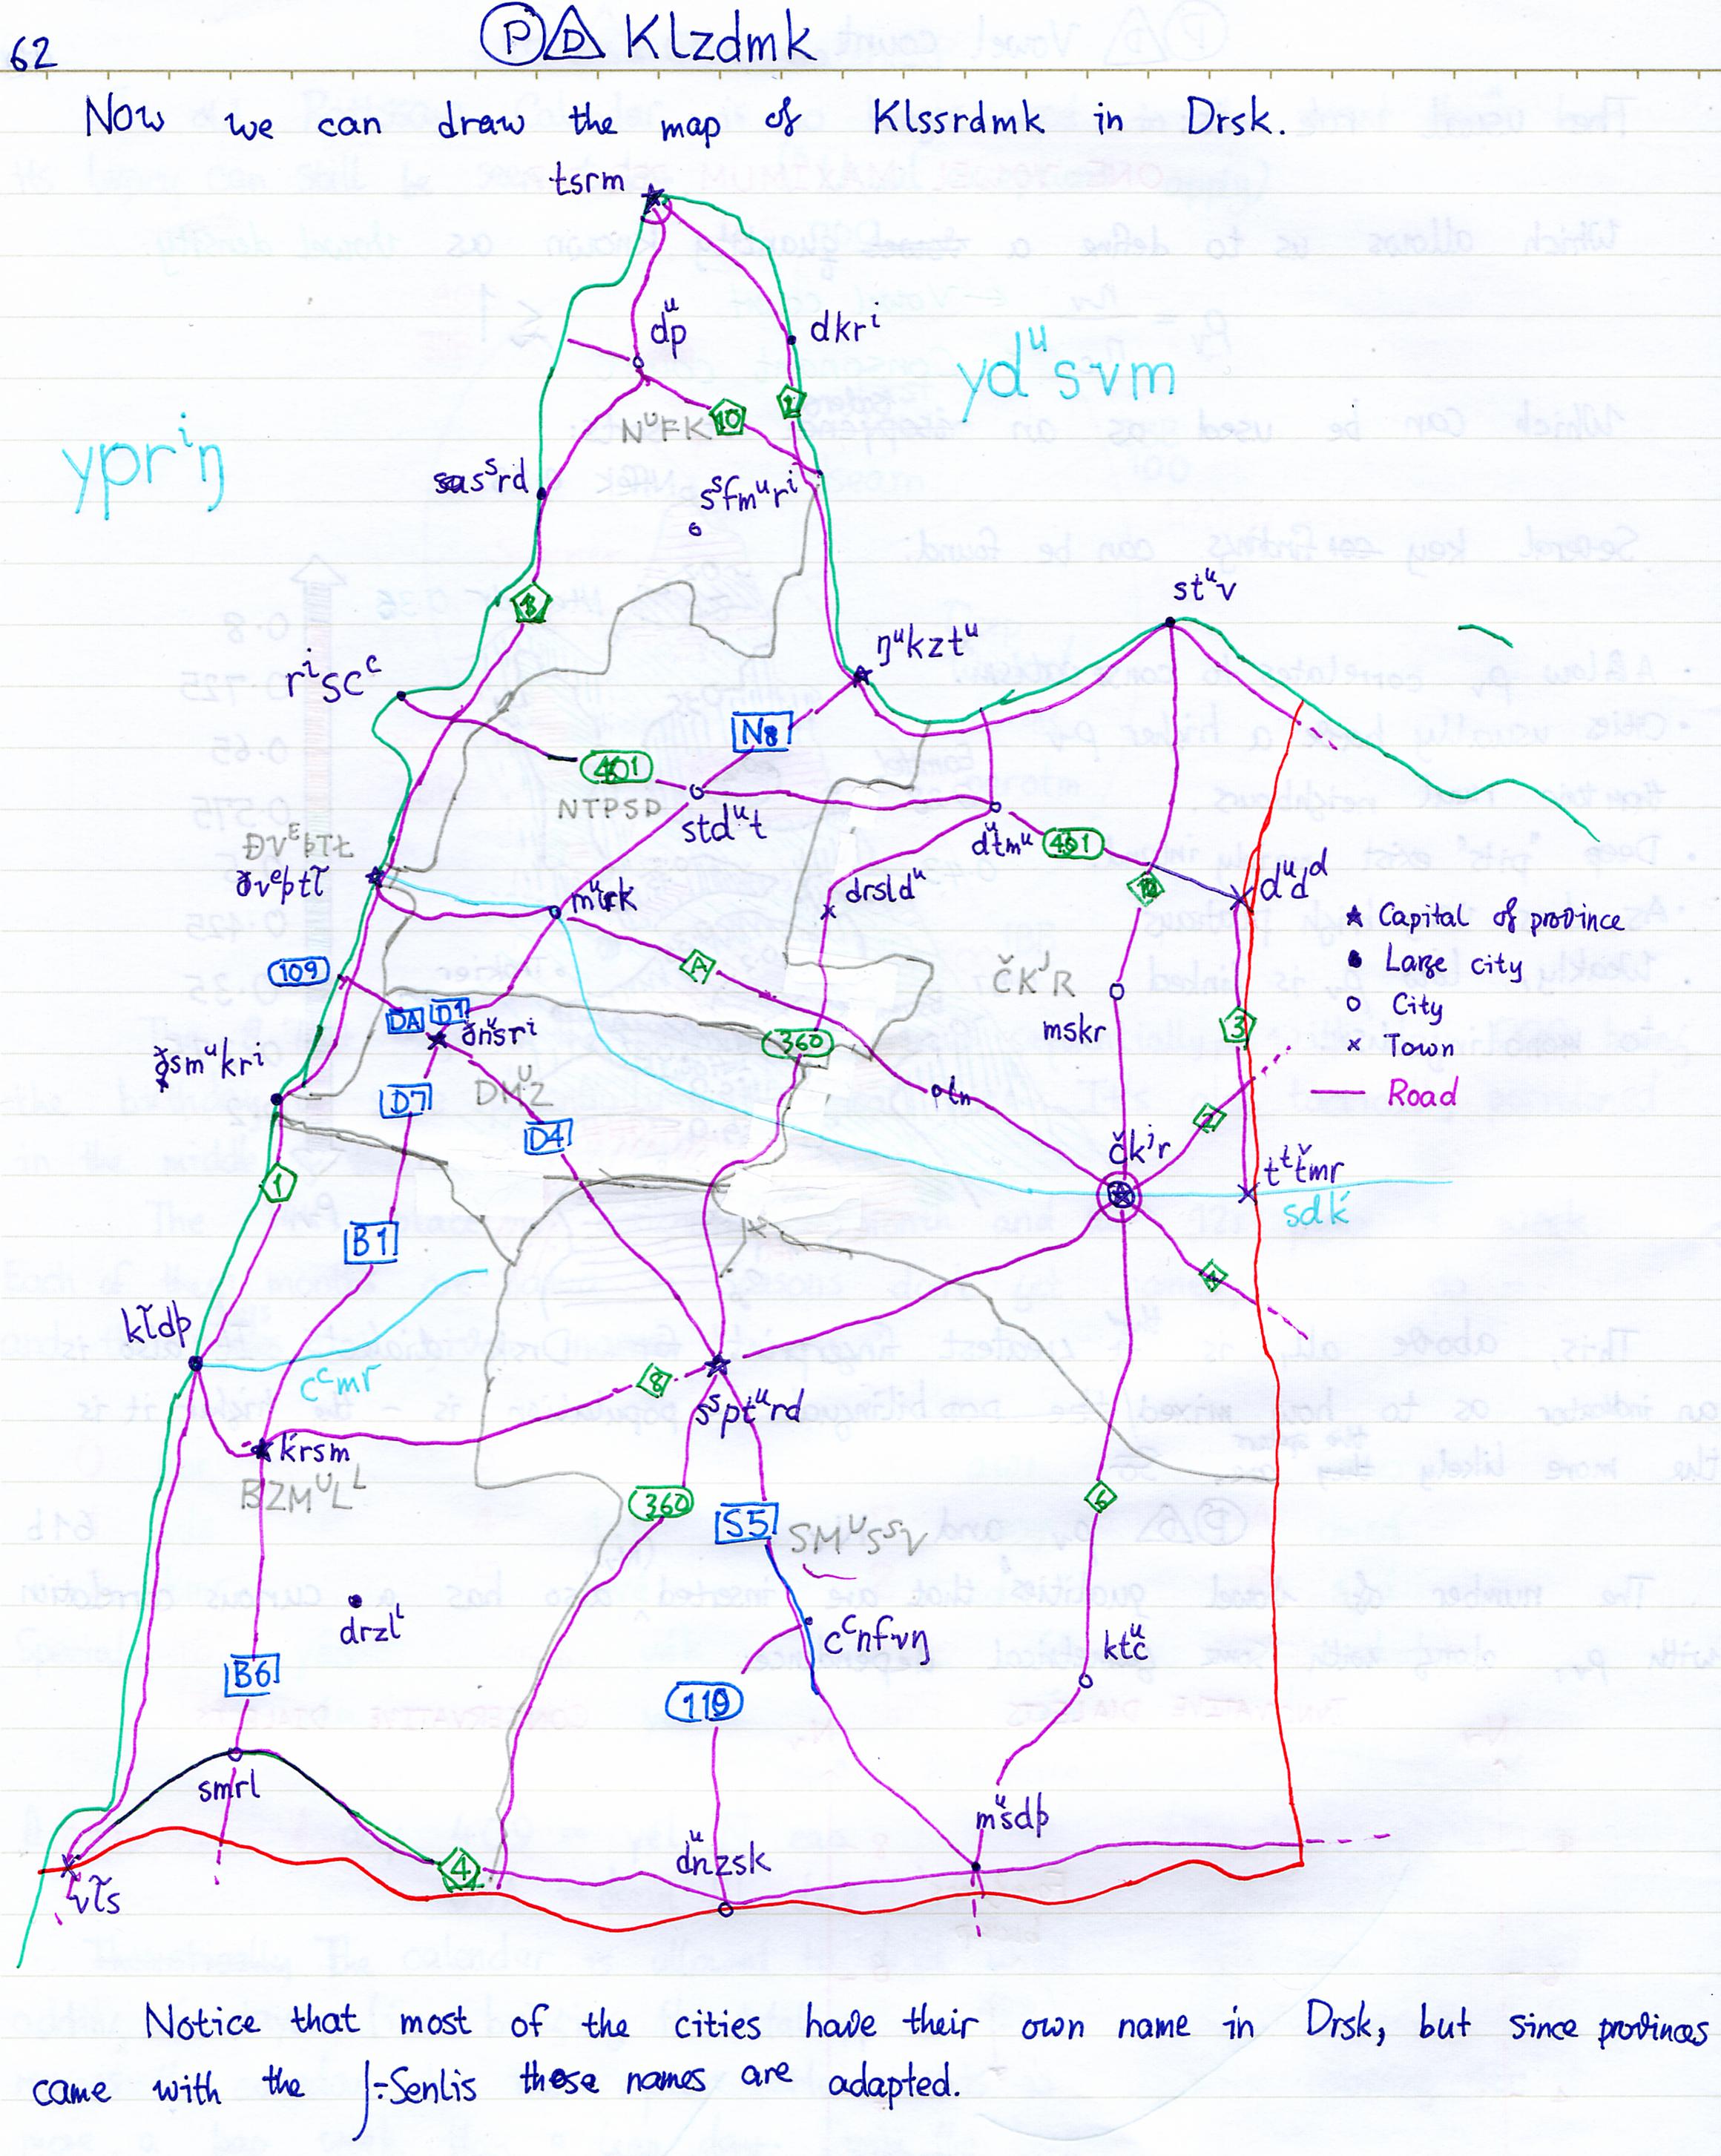 62
Ⓟ D Klzdmk
Now we can draw the map of Klssrdmk in Drsk.
tsrm
dᵘp
dkrⁱ
ydᵘsvm
1
10
NᵁFK
yprⁱŋ
sasˢrd
sˢfmᵘrⁱ
3
stᵘv
ŋᵘkztᵘ
rⁱscᶜ
N8
401
NTPSD
stdᵘt
dᵘtmᵘ
401
ÐVᴱÞTŁ
ðvᵉþtl̃
mᵘrk
drsldᵘ
dᵘdᵈ
★ Capital of province
● Large city
○ City
× Town
— Road
109
A
ČKᴶR
mskr
3
DA
D1
ðnᵘsri
360
ðsmᵘkrⁱ
D7
DMᵁZ
tn
2
D4
čkʲr
tᵗťmr
sdḱ
1
B1
4
kl̃dþ
cᶜmr
8
sˢptᵘrd
ḱrsm
BZMᵁLᴸ
360
S5
SMᵁSˢV
6
drzlˡ
cᶜnfvŋ
ktᵘč
B6
119
smrl
mᵘšdþ
4
dᵘnzsk
vl̃s
Notice that most of the cities have their own name in Drsk, but since provinces
came with the ʃ÷Senlis these names are adapted.